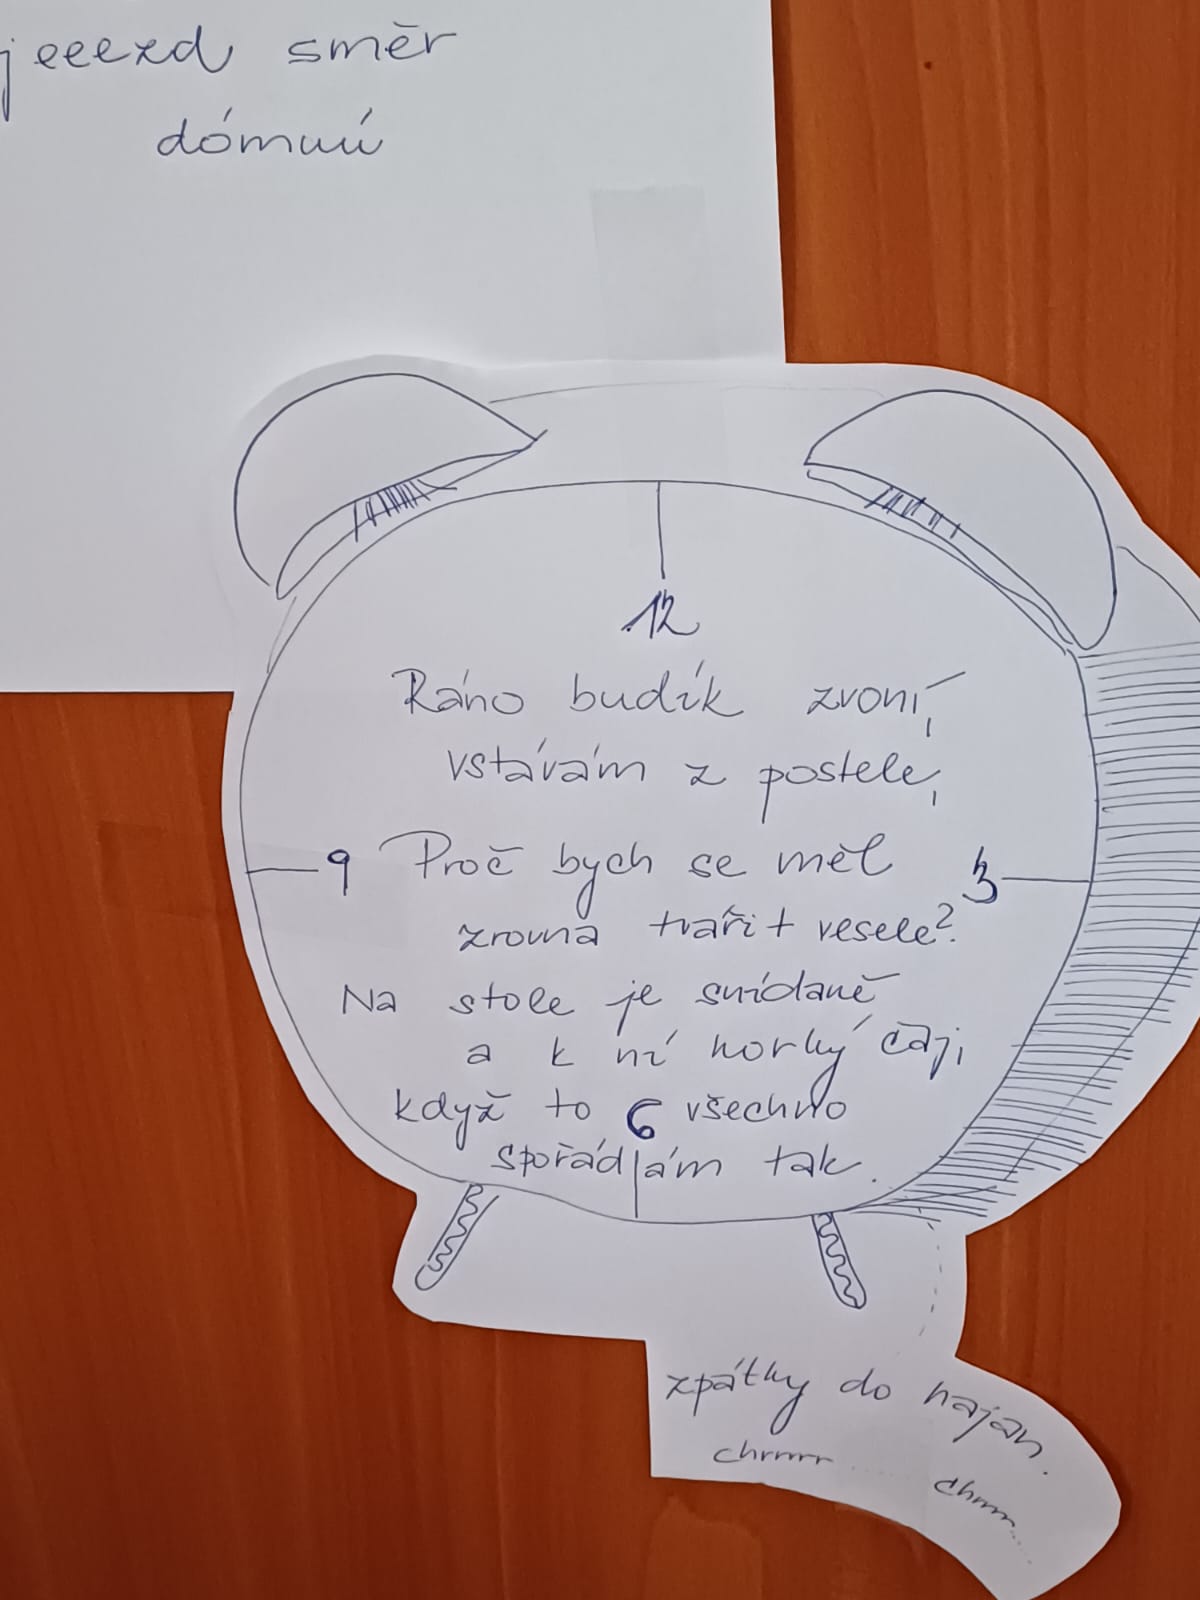 jeeezd směr
dómuú
12
Ráno budík zvoní,
vstávám z postele,
9 Proč bych se měl 3
zrovna tvářit vesele?
Na stole je snídaně
a k ní horký čaj,
když to 6 všechno
spořádám tak
zpátky do hajan.
chrrrrr ..... chrrr.....